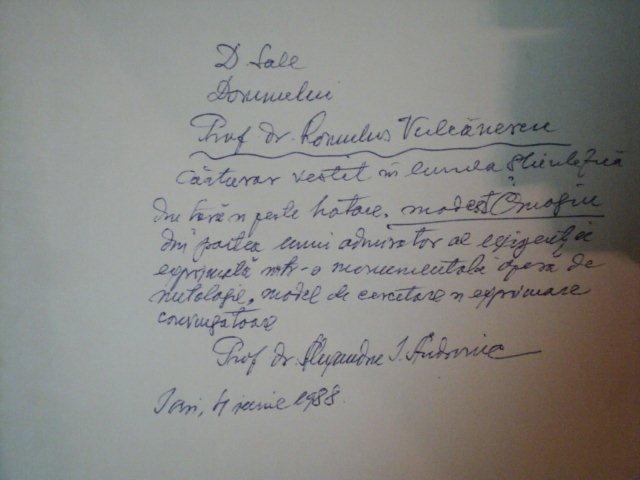 D Sale
Domnului
Prof dr. Romulus Vulcănescu
Cărturar vestit în lumea științifică
din țară și peste hotare, modest Omagiu
din partea unui admirator al exigenței
exprimată într-o monumentală operă de
mitologie, model de cercetare și exprimare
convingătoare
Prof dr. Alexandru I. Andronic
Iași, 4 iunie 1988.